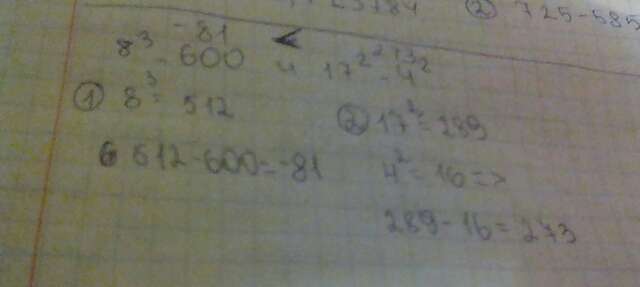 ② 725-585
-81 <
8³ - 600 и 17² - 4²
① 8³ = 512
② 17² = 289
612-600=-81
4² = 16 =>
289-16=273